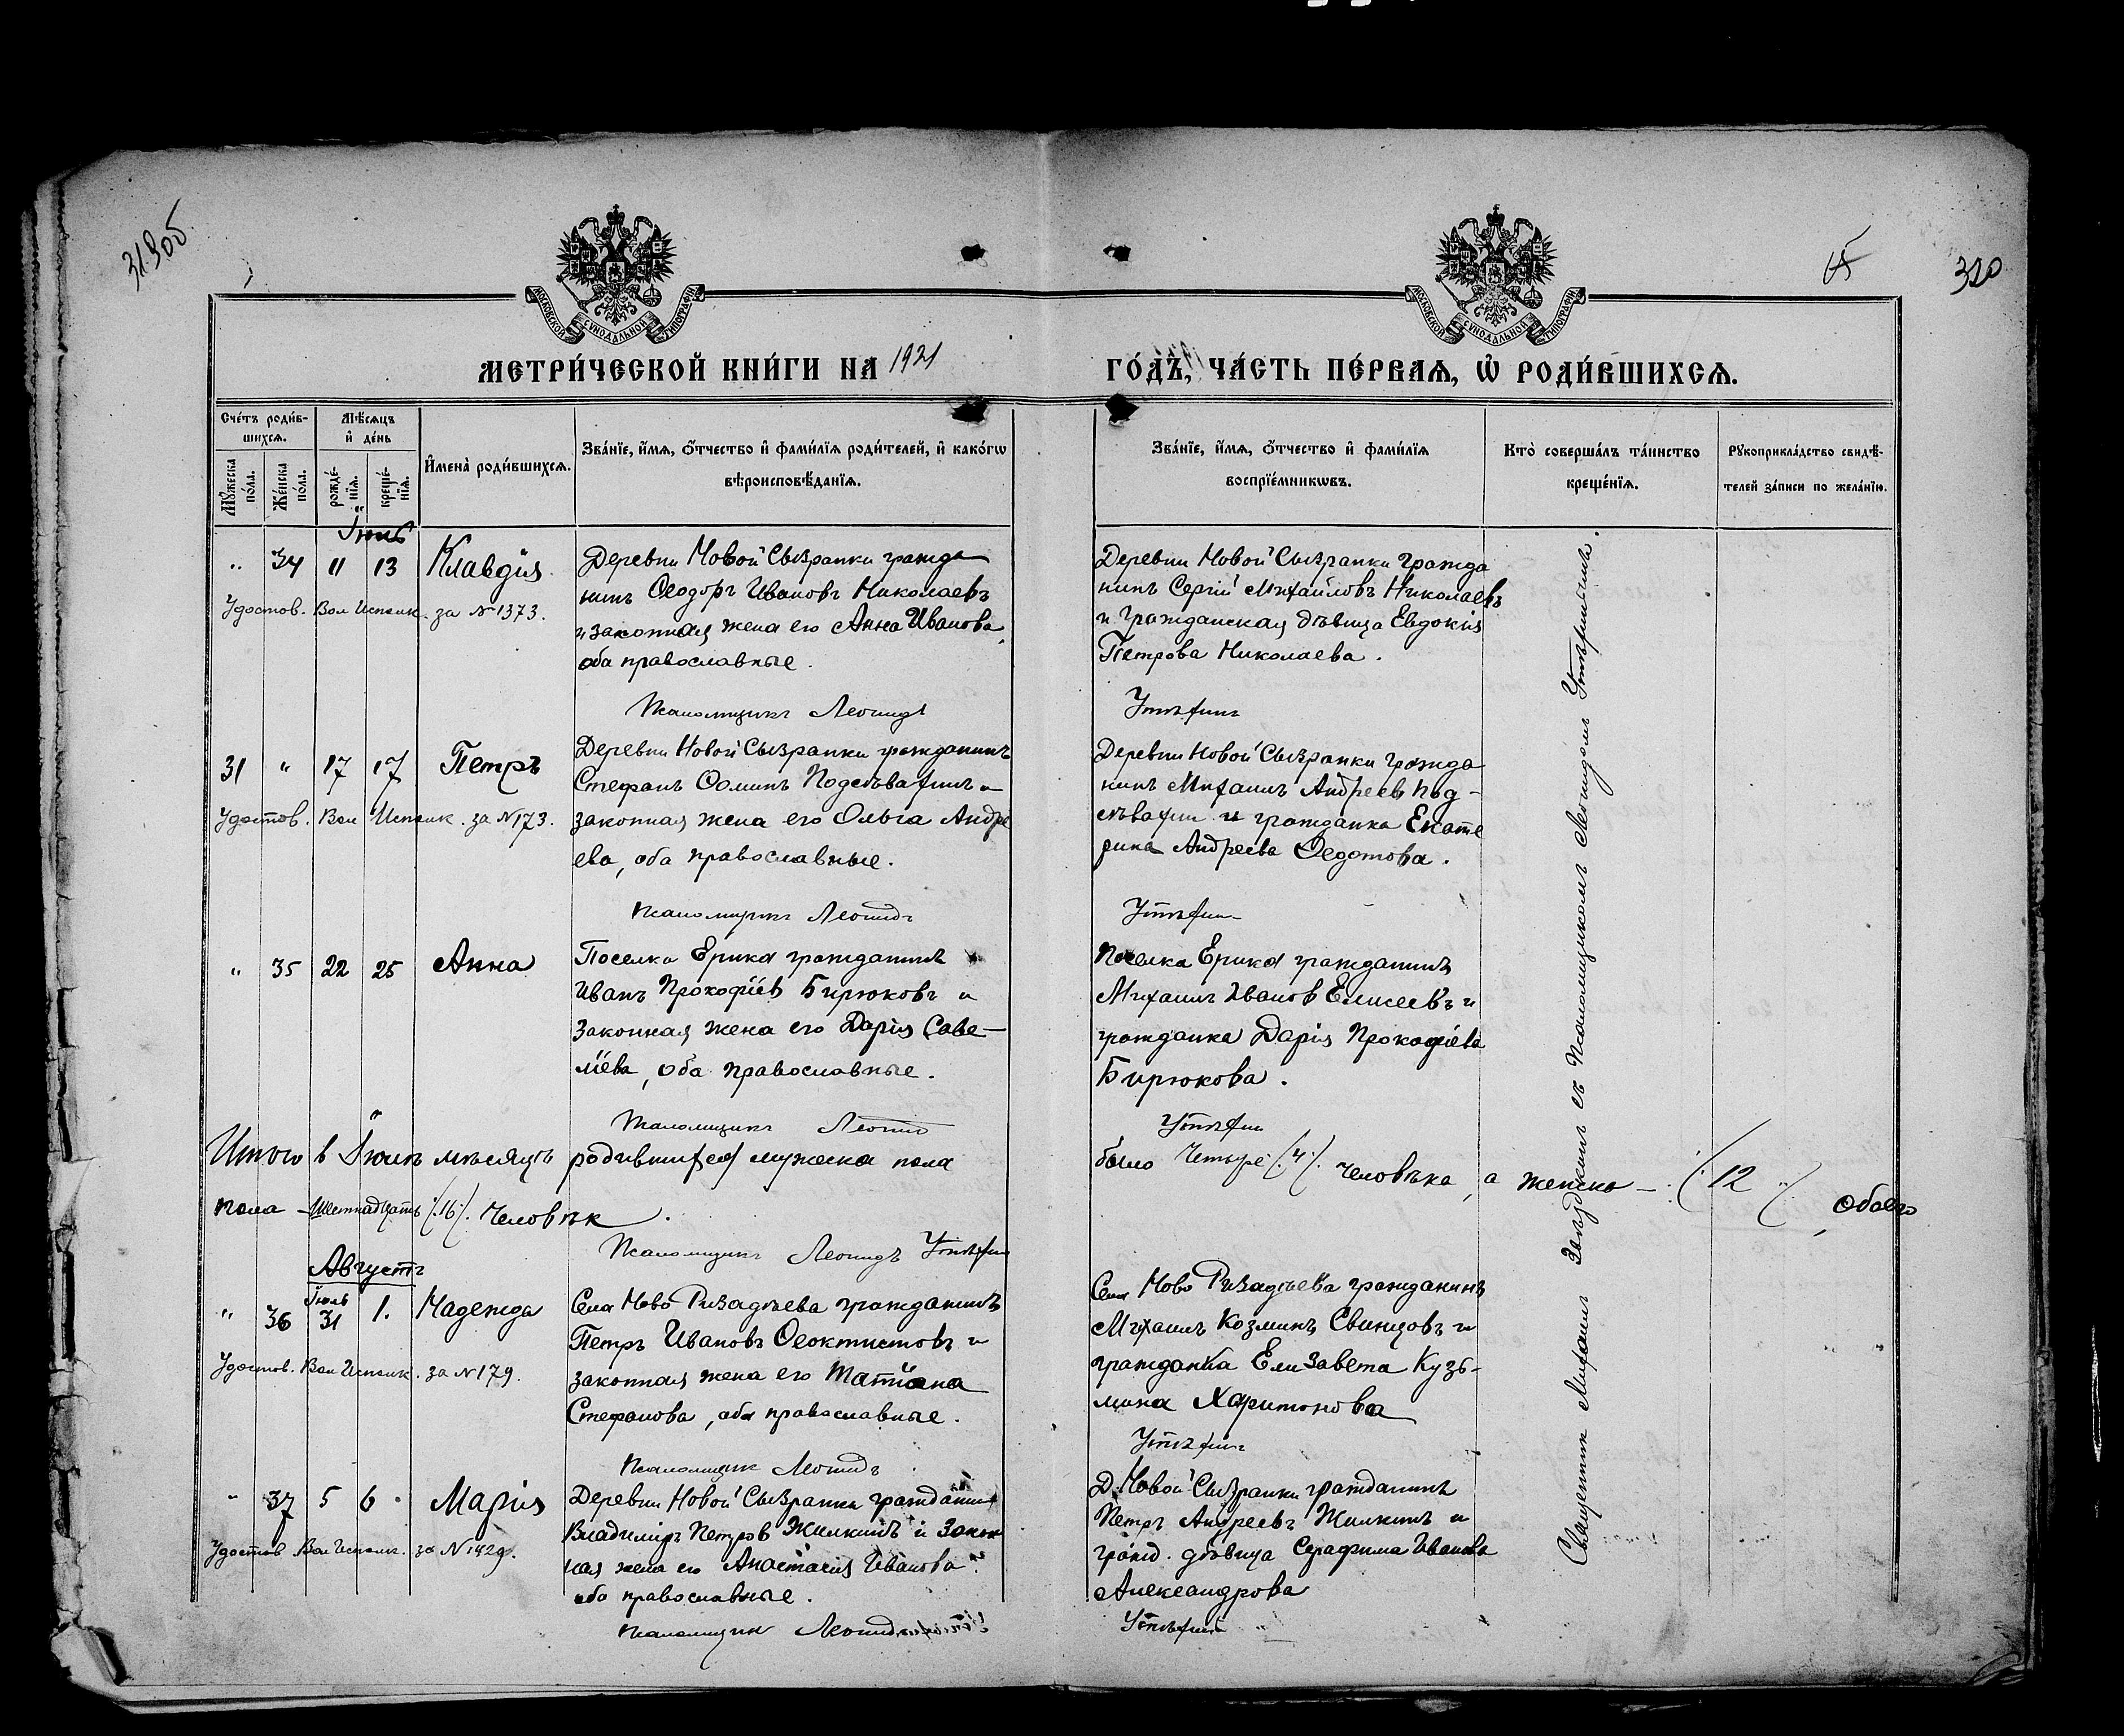 319об
15
320
МОСКОВСКОЙ СѴНОДАЛЬНОЙ ТИПОГРАФІИ
МОСКОВСКОЙ СѴНОДАЛЬНОЙ ТИПОГРАФІИ
МЕТРИ́ЧЕСКОЙ КНИ́ГИ НА 1921
ГО́ДЪ, ЧА́СТЬ ПЕ́РВАѦ, Ѡ҆ РОДИ́ВШИХСѦ.
Сче́тъ роди́в-
шихсѧ.
Мѣ́сѧцъ
и҆ де́нь
Мꙋ́жеска
по́ла.
Же́нска
по́ла.
рожде́-
нїѧ.
креще́-
нїѧ.
И҆мена̀ роди́вшихсѧ.
Зва́нїе, и҆́мѧ, ѻ҆́тчество и҆ фами́лїѧ роди́телей, и҆ како́гѡ
вѣроисповѣ́данїѧ.
Зва́нїе, и҆́мѧ, ѻ҆́тчество и҆ фами́лїѧ
воспрїе́мникѡвъ.
Кто̀ соверша́лъ та́инство
креще́нїѧ.
Рꙋкоприкла́дство свидѣ́-
телей за́писи по жела́нїю.
Іюль
" 34 11 13 Клавдія
Удостов. Вол Исполк. за № 1373.
Деревни Новой Сызранки гражда
нинъ Ѳеодоръ Ивановъ Николаевъ
и законная жена его Анна Иванова,
оба православные.
Псаломщикъ Леонидъ
Деревни Новой Сызранки гражда
нинъ Сергій Михайловъ Николаевъ
и гражданская дѣвица Евдокія
Петрова Николаева.
Утѣхинъ
31 " 17 17 Петръ
Удостов. Вол Исполк. за № 173.
Деревни Новой Сызранки гражданинъ
Стефанъ Ѳоминъ Подсѣвахинъ и
законная жена его Ольга Андре
ева, оба православные.
Псаломщикъ Леонидъ
Деревни Новой Сызранки гражда
нинъ Михаилъ Андреевъ Под-
сѣвахин и гражданка Екате
рина Андреева Ѳедотова.
Утѣхин
" 35 22 25 Анна
Поселка Ерика гражданинъ
Иванъ Прокофіевъ Бирюковъ и
законная жена его Дарія Саве-
ліева, оба православные.
Псаломщикъ Леонид
Поселка Ерика гражданинъ
Михаилъ Иванов Елисеевъ и
гражданка Дарія Прокофіева
Бирюкова.
Утѣхин
Итого в Іюлѣ мѣсяцѣ родившихся мужеска пола
было Четыре /.4/. человѣка, а женска — (.12 ./. Обоего
пола — Шестнадцать /.16/. Человѣк.
Псаломщикъ Леонидъ Утѣхин
Августъ
Іюль
" 36 31 1. Надежда
Удостов. Вол Исполк. за № 179.
Села Ново Ризадѣева гражданинъ
Петръ Ивановъ Ѳеоктистовъ и
законная жена его Татіана
Стефанова, оба православные.
Псаломщик Леонидъ
Села Ново Ризадѣева гражданинъ
Михаилъ Козминъ Свинцовъ и
гражданка Елизавета Кузь-
мина Харитонова
Утѣхинъ
" 37 5 6. Марія
Удостов. Вол Исполк. за № 1429.
Деревни Новой Сызранки гражданин
Владиміръ Петров Жилкинъ и закон
ная жена его Анастасія Иванова.
оба православные.
Псаломщик Леонидъ
Д. Новой Сызранки гражданинъ
Петръ Андреевъ Жилкинъ и
гражд. дѣвица Серафима Иванова
Александрова
Утѣхин
Священник Михаилъ съ Псаломщикомъ Леонидом Утѣхинымъ.